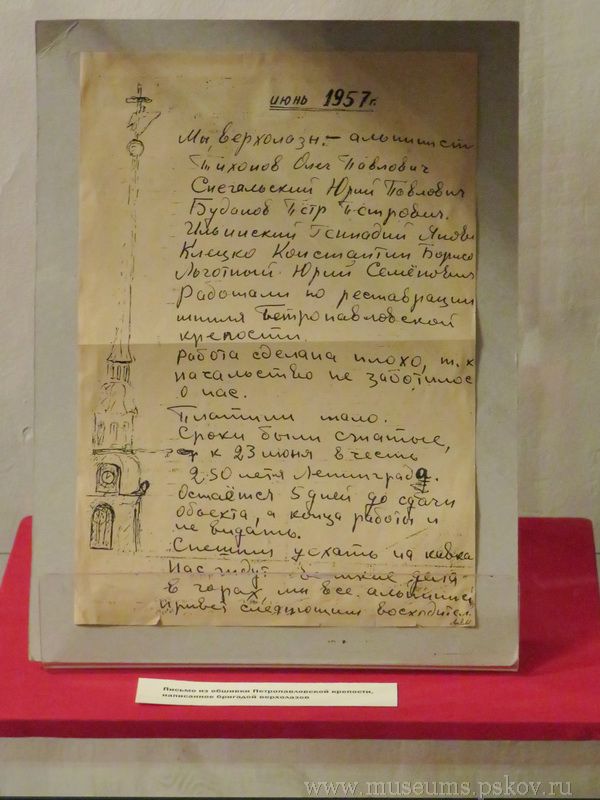 июнь 1957 г.
Мы, верхолазы - альпинисты
Тихонов Олег Павлович
Спегальский Юрий Павлович
Буданов Пётр Петрович.
Ильинский Геннадий Яковл
Клецко Константин Борисо
Льготный Юрий Семёнович
Работали по реставрации
шпиля Петропавловской
крепости.
Работа сделана плохо, т.к
начальство не заботилос
о нас.
Платили мало.
Сроки были сжатые,
к 23 июня в честь
250 летя Ленинграда.
Остаётся 5 дней до сдачи
объекта, а конца работы и
не видать.
Спешим уехать на кавка
Нас ждут великие дела
в горах, мы все альпинис
Привет следующим восходител
Письмо из обшивки Петропавловской крепости,
написанное бригадой верхолазов
www.museums.pskov.ru